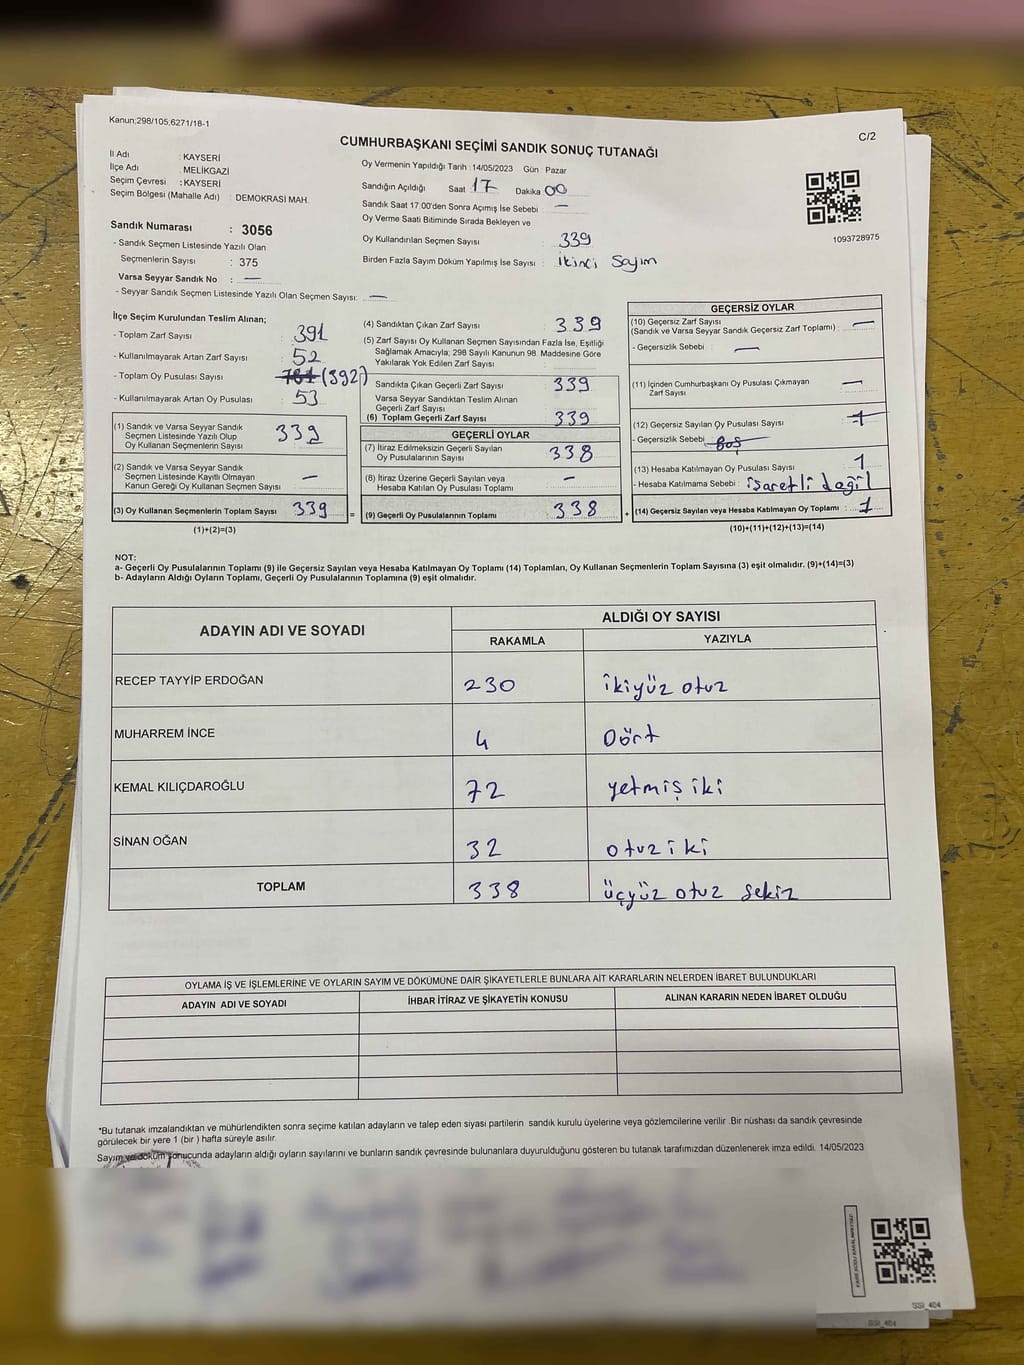 Kanun;298/105,6271/18-1
C/2
CUMHURBAŞKANI SEÇİMİ SANDIK SONUÇ TUTANAĞI
İl Adı : KAYSERİ
İlçe Adı : MELİKGAZİ
Seçim Çevresi : KAYSERİ
Seçim Bölgesi (Mahalle Adı) : DEMOKRASİ MAH.
Oy Vermenin Yapıldığı Tarih : 14/05/2023 Gün : Pazar
Sandığın Açıldığı Saat 17 Dakika 00
Sandık Saat 17:00'den Sonra Açımış İse Sebebi : —
Oy Verme Saati Bitiminde Sırada Bekleyen ve
Oy Kullandırılan Seçmen Sayısı : 339
Birden Fazla Sayım Döküm Yapılmış İse Sayısı : ikinci Sayım
1093728975
Sandık Numarası : 3056
- Sandık Seçmen Listesinde Yazılı Olan
Seçmenlerin Sayısı : 375
Varsa Seyyar Sandık No : —
- Seyyar Sandık Seçmen Listesinde Yazılı Olan Seçmen Sayısı: —
İlçe Seçim Kurulundan Teslim Alınan;
- Toplam Zarf Sayısı : 391
- Kullanılmayarak Artan Zarf Sayısı : 52
- Toplam Oy Pusulası Sayısı (392)
- Kullanılmayarak Artan Oy Pusulası : 53
(1) Sandık ve Varsa Seyyar Sandık
Seçmen Listesinde Yazılı Olup
Oy Kullanan Seçmenlerin Sayısı 339
(2) Sandık ve Varsa Seyyar Sandık
Seçmen Listesinde Kayıtlı Olmayan
Kanun Gereği Oy Kullanan Seçmen Sayısı —
(3) Oy Kullanan Seçmenlerin Toplam Sayısı 339
(1)+(2)=(3)
(4) Sandıktan Çıkan Zarf Sayısı : 339
(5) Zarf Sayısı Oy Kullanan Seçmen Sayısından Fazla İse, Eşitliği
Sağlamak Amacıyla; 298 Sayılı Kanunun 98. Maddesine Göre
Yakılarak Yok Edilen Zarf Sayısı
Sandıkta Çıkan Geçerli Zarf Sayısı 339
Varsa Seyyar Sandıktan Teslim Alınan
Geçerli Zarf Sayısı
(6) Toplam Geçerli Zarf Sayısı 339
GEÇERLİ OYLAR
(7) İtiraz Edilmeksizin Geçerli Sayılan
Oy Pusulalarının Sayısı 338
(8) İtiraz Üzerine Geçerli Sayılan veya
Hesaba Katılan Oy Pusulası Toplamı —
= (9) Geçerli Oy Pusulalarının Toplamı 338 +
GEÇERSİZ OYLAR
(10) Geçersiz Zarf Sayısı
(Sandık ve Varsa Seyyar Sandık Geçersiz Zarf Toplamı) : —
- Geçersizlik Sebebi : —
(11) İçinden Cumhurbaşkanı Oy Pusulası Çıkmayan
Zarf Sayısı —
(12) Geçersiz Sayılan Oy Pusulası Sayısı : 1
- Geçersizlik Sebebi : Boş
(13) Hesaba Katılmayan Oy Pusulası Sayısı 1
- Hesaba Katılmama Sebebi : işaretli dağil
(14) Geçersiz Sayılan veya Hesaba Katılmayan Oy Toplamı : 1
(10)+(11)+(12)+(13)=(14)
NOT:
a- Geçerli Oy Pusulalarının Toplamı (9) ile Geçersiz Sayılan veya Hesaba Katılmayan Oy Toplamı (14) Toplamları, Oy Kullanan Seçmenlerin Toplam Sayısına (3) eşit olmalıdır. (9)+(14)=(3)
b- Adayların Aldığı Oyların Toplamı, Geçerli Oy Pusulalarının Toplamına (9) eşit olmalıdır.
ADAYIN ADI VE SOYADI
ALDIĞI OY SAYISI
RAKAMLA YAZIYLA
RECEP TAYYİP ERDOĞAN 230 ikiyüz otuz
MUHARREM İNCE 4 Dört
KEMAL KILIÇDAROĞLU 72 yetmiş iki
SİNAN OĞAN 32 otuz iki
TOPLAM 338 üçyüz otuz sekiz
OYLAMA İŞ VE İŞLEMLERİNE VE OYLARIN SAYIM VE DÖKÜMÜNE DAİR ŞİKAYETLERLE BUNLARA AİT KARARLARIN NELERDEN İBARET BULUNDUKLARI
ADAYIN ADI VE SOYADI İHBAR İTİRAZ VE ŞİKAYETİN KONUSU ALINAN KARARIN NEDEN İBARET OLDUĞU
*Bu tutanak imzalandıktan ve mühürlendikten sonra seçime katılan adayların ve talep eden siyasi partilerin sandık kurulu üyelerine veya gözlemcilerine verilir. Bir nüshası da sandık çevresinde
görülecek bir yere 1 (bir ) hafta süreyle asılır.
Sayım ve döküm sonucunda adayların aldığı oyların sayılarını ve bunların sandık çevresinde bulunanlara duyurulduğunu gösteren bu tutanak tarafımızdan düzenlenerek imza edildi. 14/05/2023
SSİ_404
SSİ_404